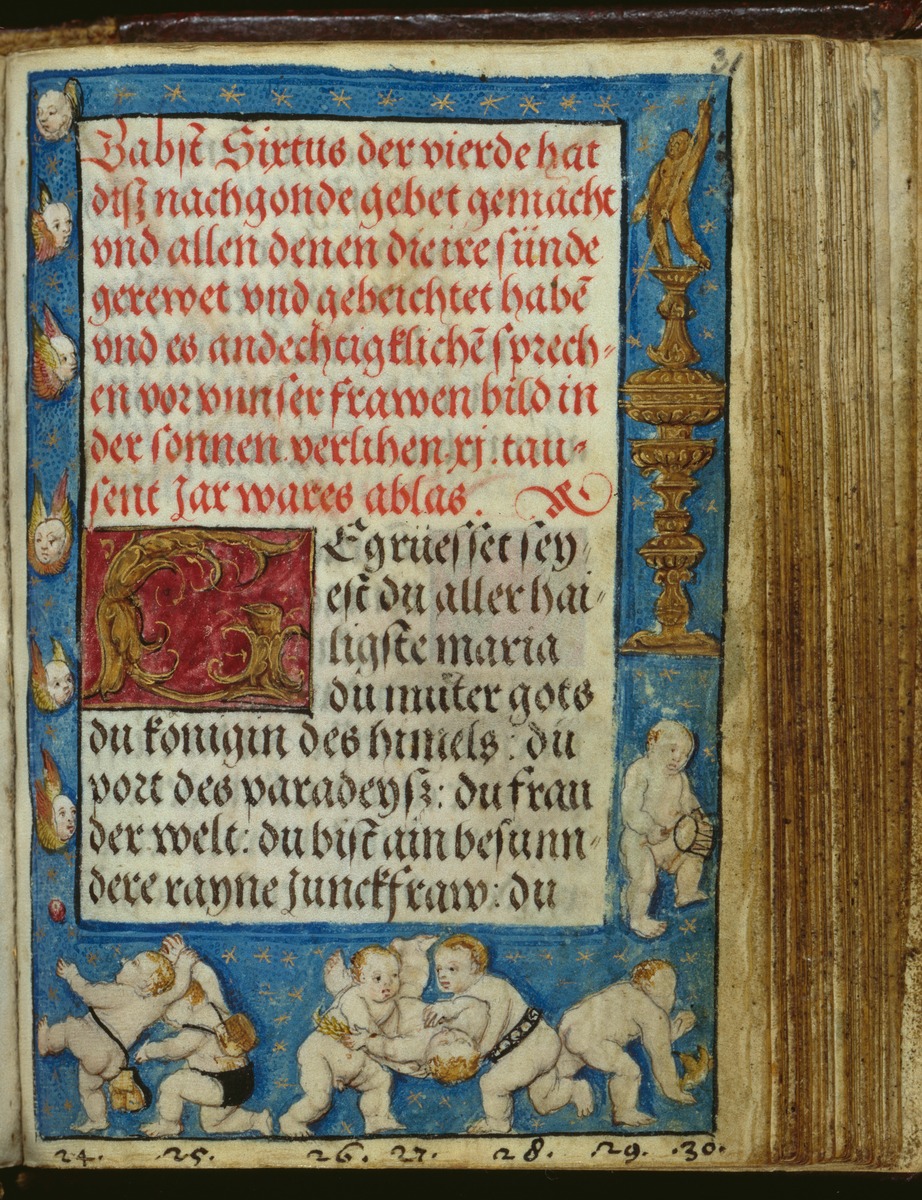 31
Babst Sixtus der vierde hat
disz nachgonde gebet gemacht
vnd allen denen die ire sünde
gerewet vnd gebeichtet habē
vnd es andechtigklichē sprech-
en vor vnnser frawen bild in
der sonnen verlihen .xj. tau-
sent Jar wares ablas.
Egrüesset sey-
est du aller hai-
ligste maria
du můter gots
du konigin des himels: du
port des paradeysz: du frau
der welt: du bist ain besunn-
dere rayne Junckfraw: du
24. 25. 26. 27. 28. 29. 30.